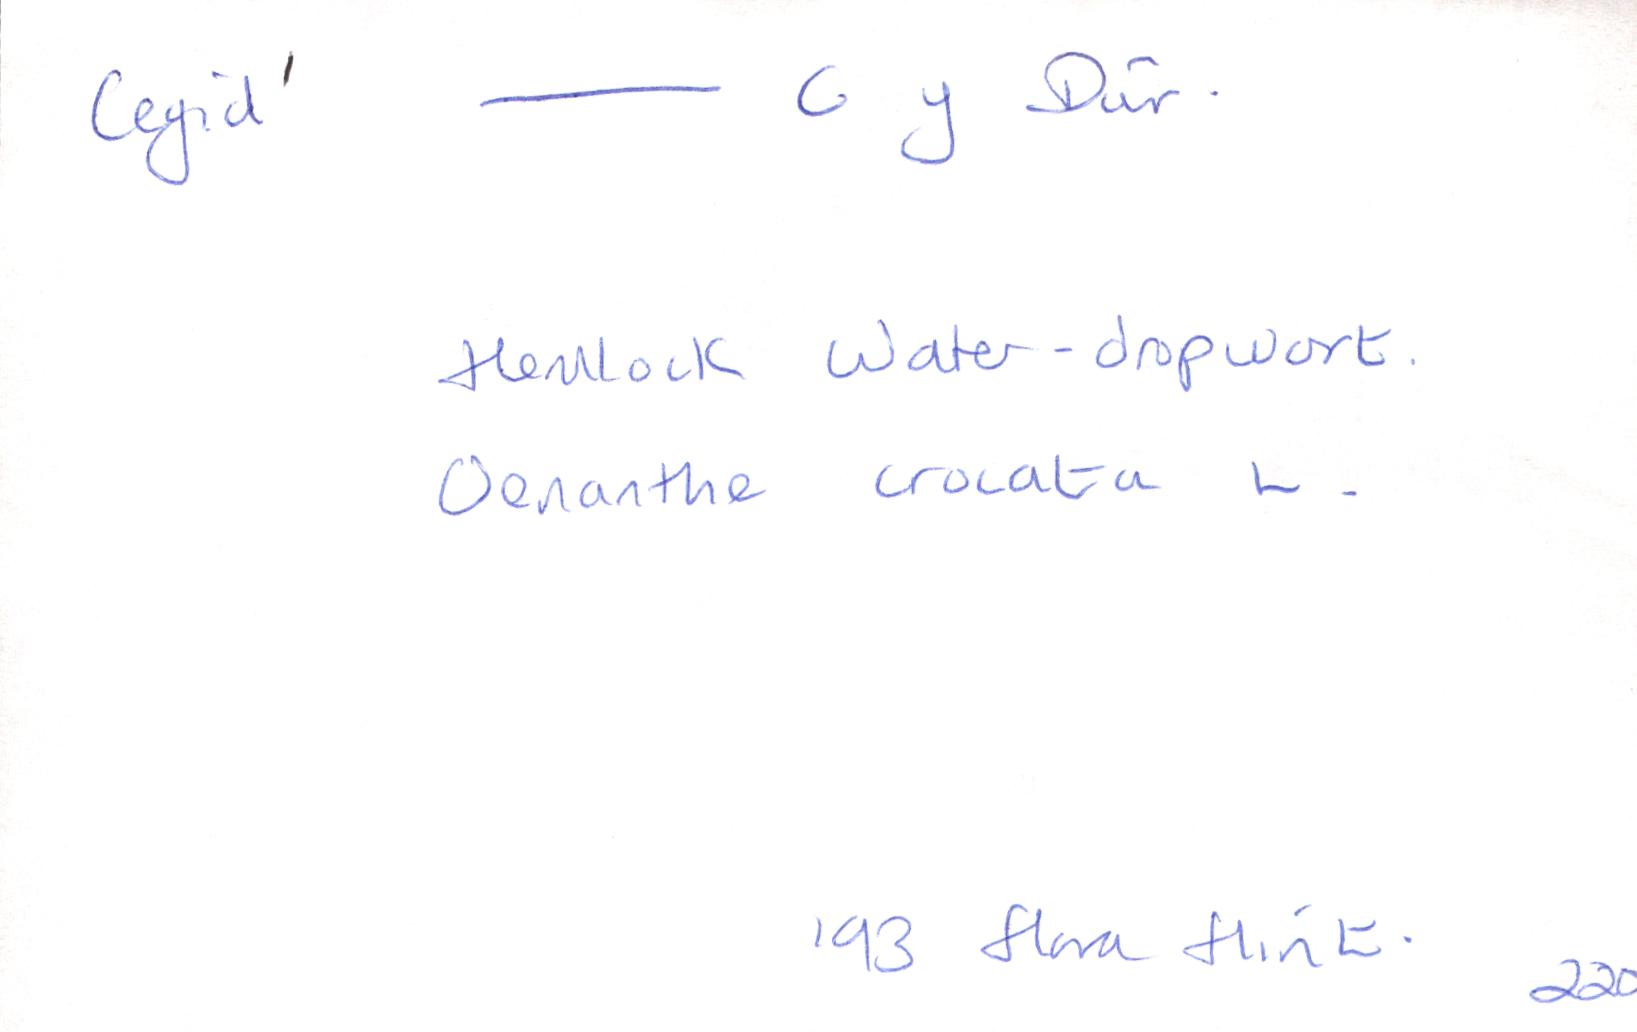 Cegid' —— C y Dŵr.
Hemlock Water-dropwort.
Oenanthe crocata L.
'93 Flora Flint.
220